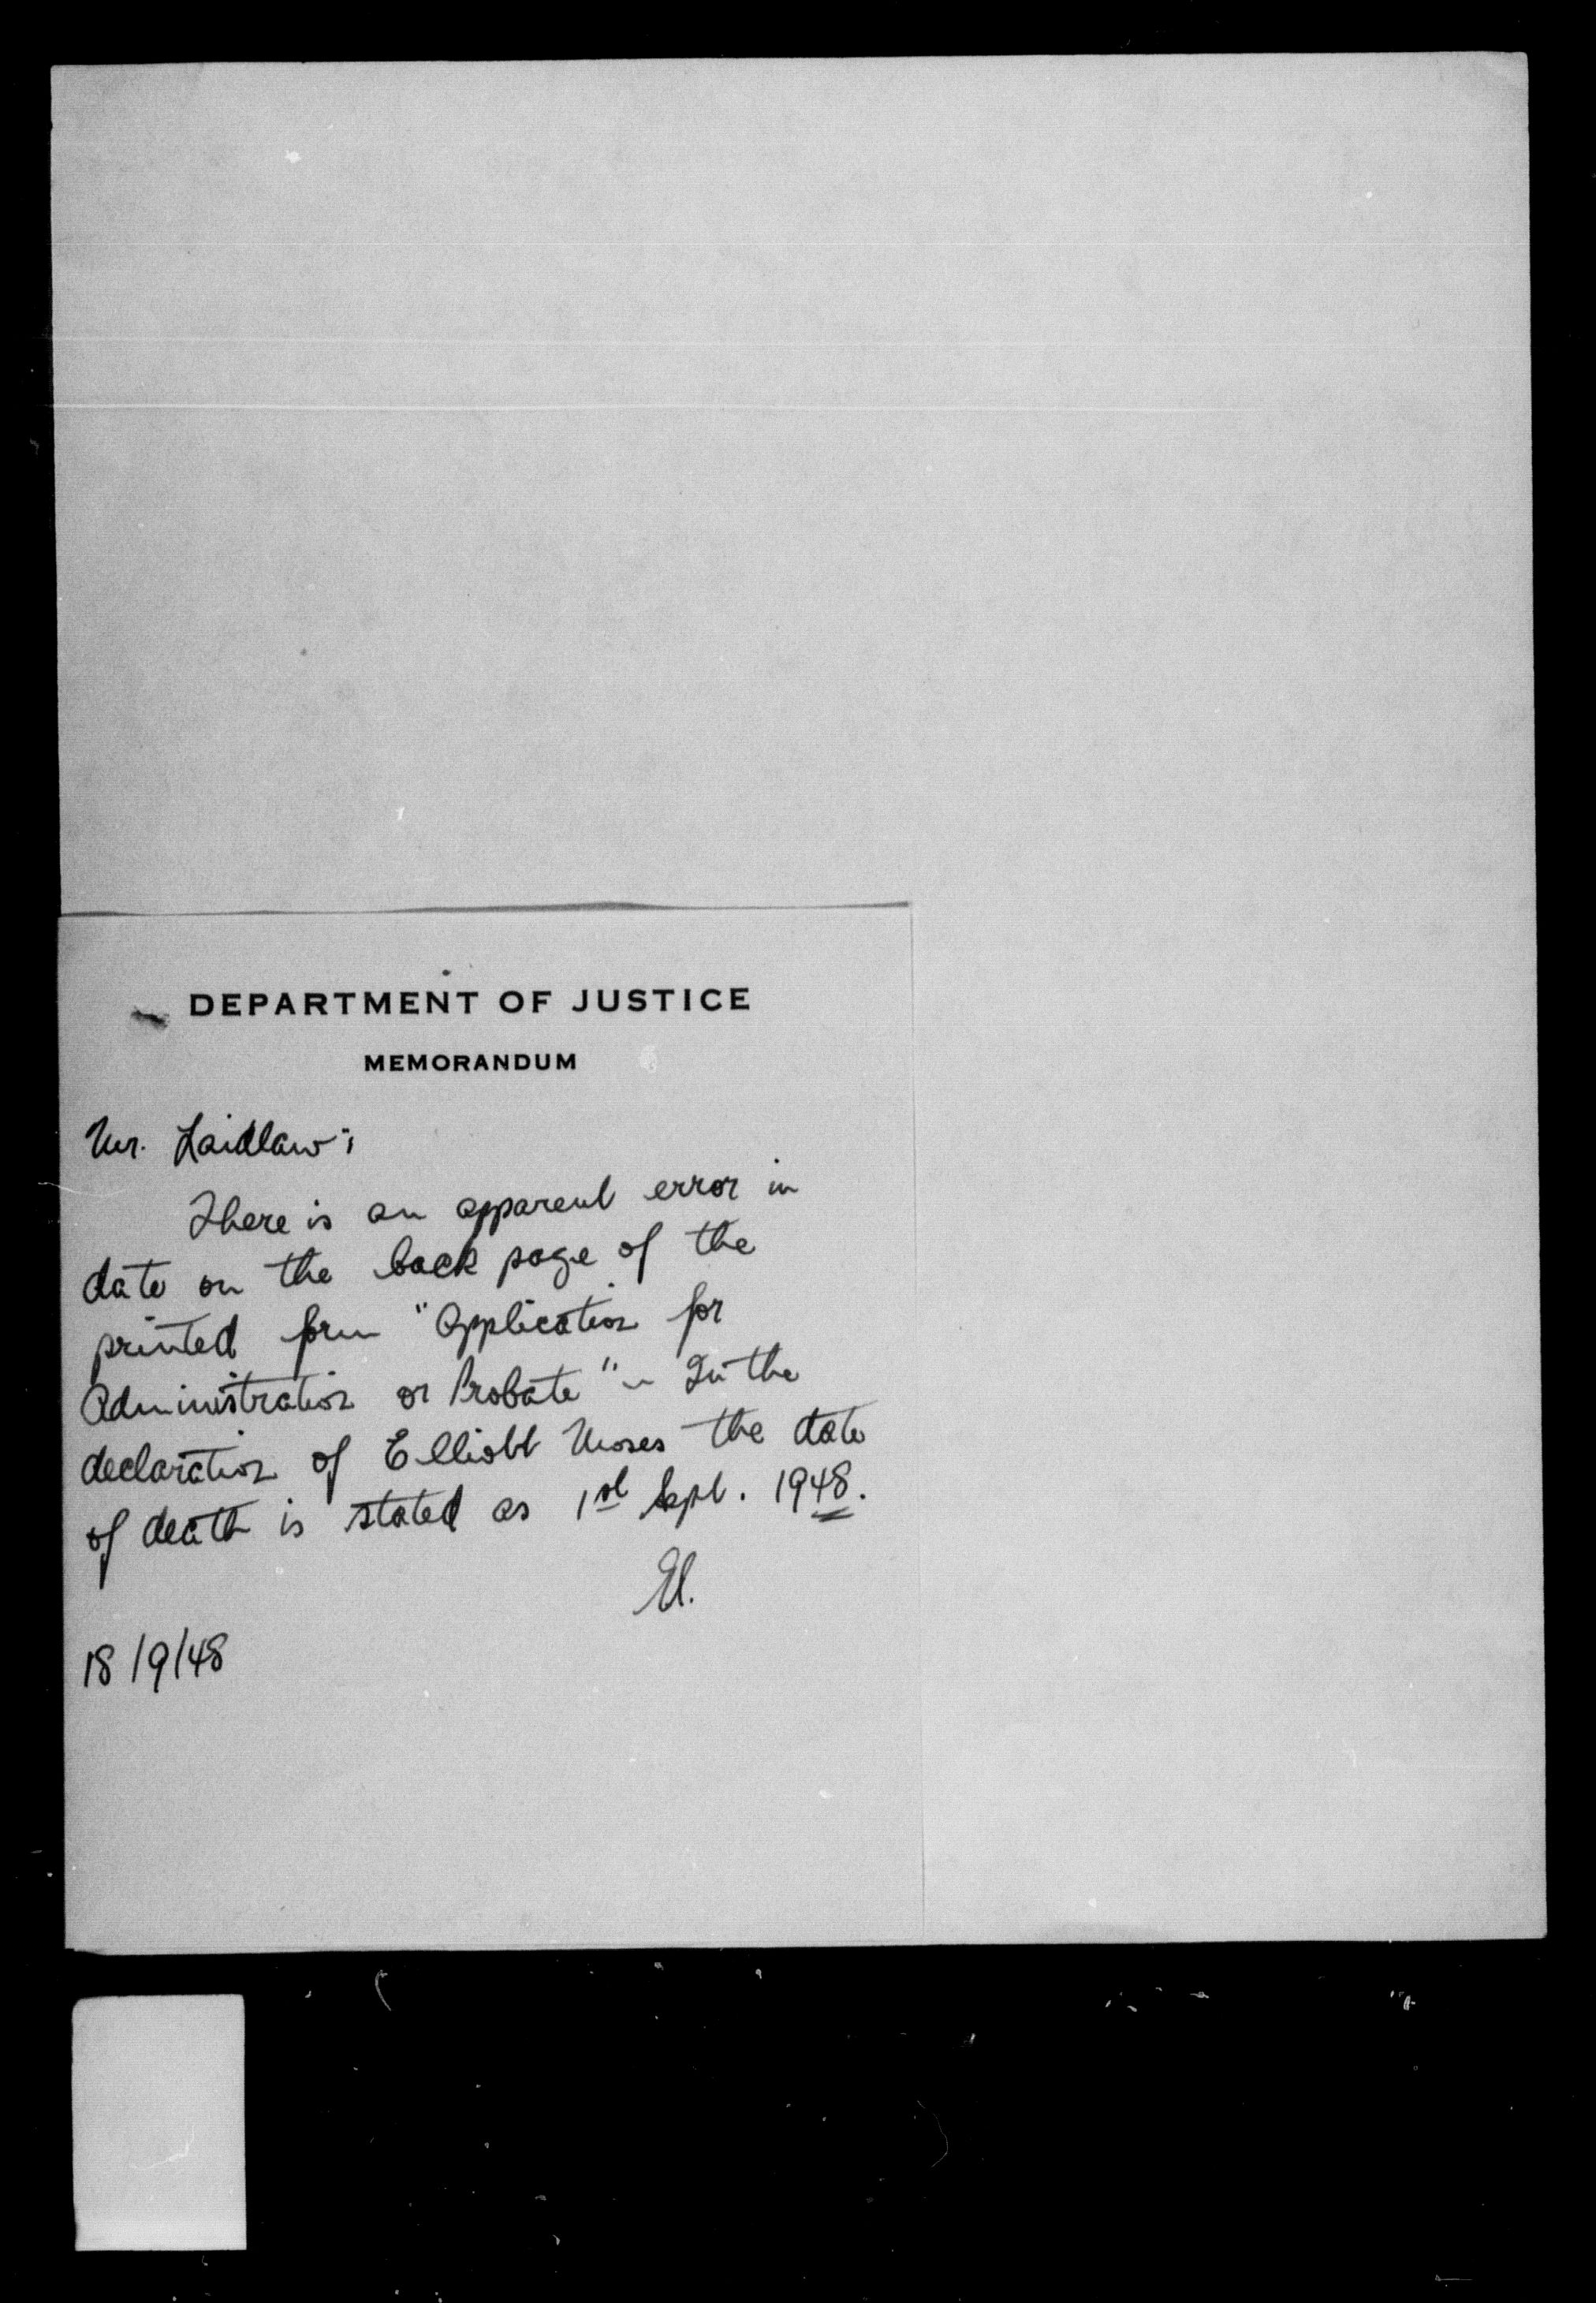 DEPARTMENT OF JUSTICE
MEMORANDUM
Mr. Laidlaw:
There is an apparent error in
date on the back page of the
printed form "Application for
Administration or Probate" - In the
declaration of Elliott Moses the date
of death is stated as 1st Sept. 1948.
18/9/48